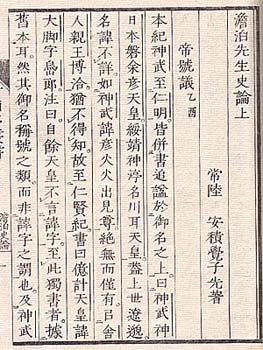 澹泊先生史論上
常陸 安積覺子先著
帝號議 乙酉
本紀神武至仁明皆併書追謚於御名之上曰神武
日本磐余彦天皇綏靖神渟名川耳天皇盖上世遼邈
名諱不詳如神武諱彦火火出見尊絶無而僅有㠯舍
人親王博洽猶不得知故至仁賢紀書曰億計天皇諱
大脚字島郎注曰自餘天皇不言諱字至此獨書者據
舊本耳然其御名稱號之類而非諱字之謂也及神武
澹泊史論